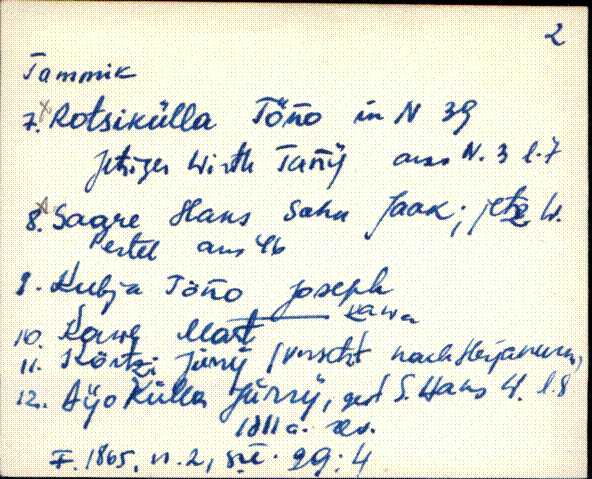 2
Tammik
7. Rotsikülla Töno in N 39
Jetziger Wirth Tañÿ aus N. 3 l. 7
8. Sagre Hans Sohn Jaak; jetz W.
Pertel aus 46
9. Kubja Töño Joseph
10. Kawa Mart Kawa
11. Körtzi Jürrÿ (versetzt nach
12. Äÿo Külla Jürrÿ, gest S. Hans W. l. 8
1811 a. Rev.
F. 1865, n. 2, sü. 29:4